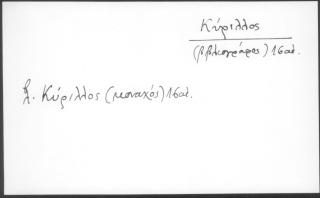 Κύριλλος
(βιβλιογράφος) 16 αι.
βλ. Κύριλλος (μοναχός) 16 αι.